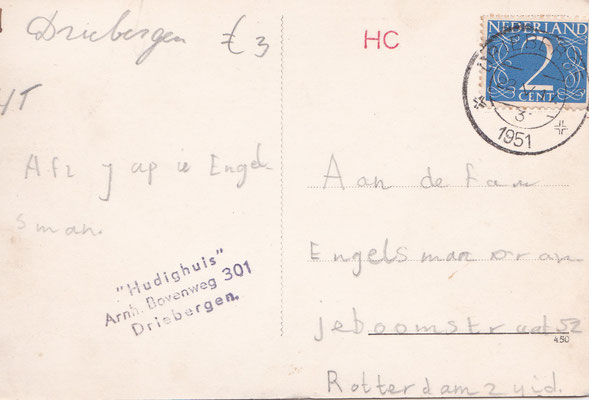 Driebergen € 3
HC
NEDERLAND
2
CENT
3
1951
HT
Afz Jap ie Engel
sman.
"Hudighuis"
Arnh. Bovenweg 301
Driebergen.
Aan de Fam
Engelsman oran
jeboomstraat 52
450
Rotterdam zuid.